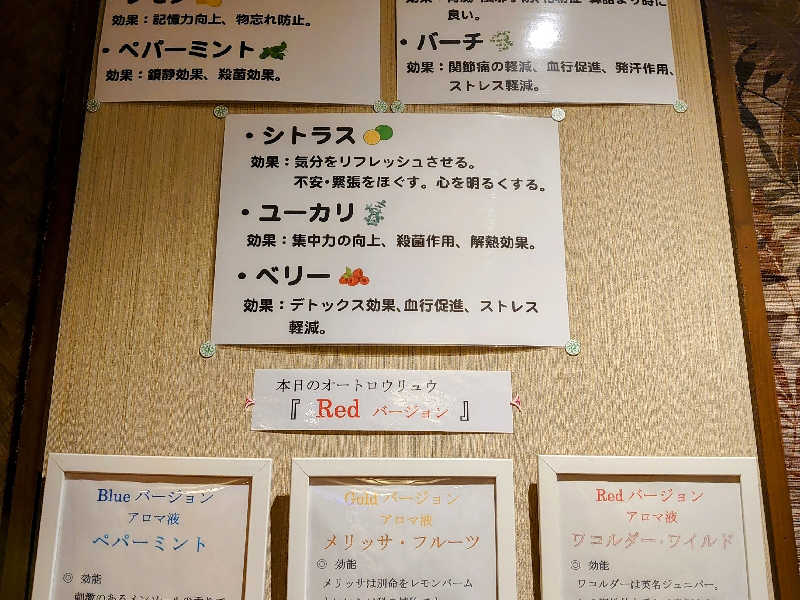 ・レモン
効果：記憶力向上、物忘れ防止。
・ペパーミント
効果：鎮静効果、殺菌効果。
良い。
・バーチ
効果：関節痛の軽減、血行促進、発汗作用、
ストレス軽減。
・シトラス
効果：気分をリフレッシュさせる。
不安・緊張をほぐす。心を明るくする。
・ユーカリ
効果：集中力の向上、殺菌作用、解熱効果。
・ベリー
効果：デトックス効果、血行促進、ストレス
軽減。
本日のオートロウリュウ
『 Red バージョン 』
Blue バージョン
アロマ液
ペパーミント
◎ 効能
Gold バージョン
アロマ液
メリッサ・フルーツ
◎ 効能
メリッサは別命をレモンバーム
Red バージョン
アロマ液
ワコルダー・ワイルド
◎ 効能
ワコルダーは英名ジュニパー。